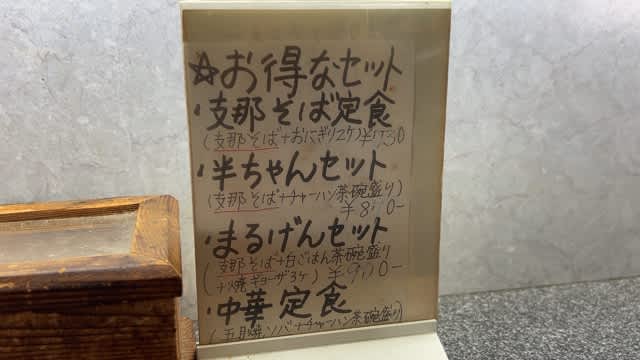 ☆お得なセット
・支那そば定食
(支那そば+おにぎり2ケ)
・半ちゃんセット
(支那そば+チャーハン茶碗盛り)
・まるげんセット
(支那そば+白ごはん茶碗盛り
+焼ギョーザ3ケ)
・中華定食
チャーハン茶碗盛り)